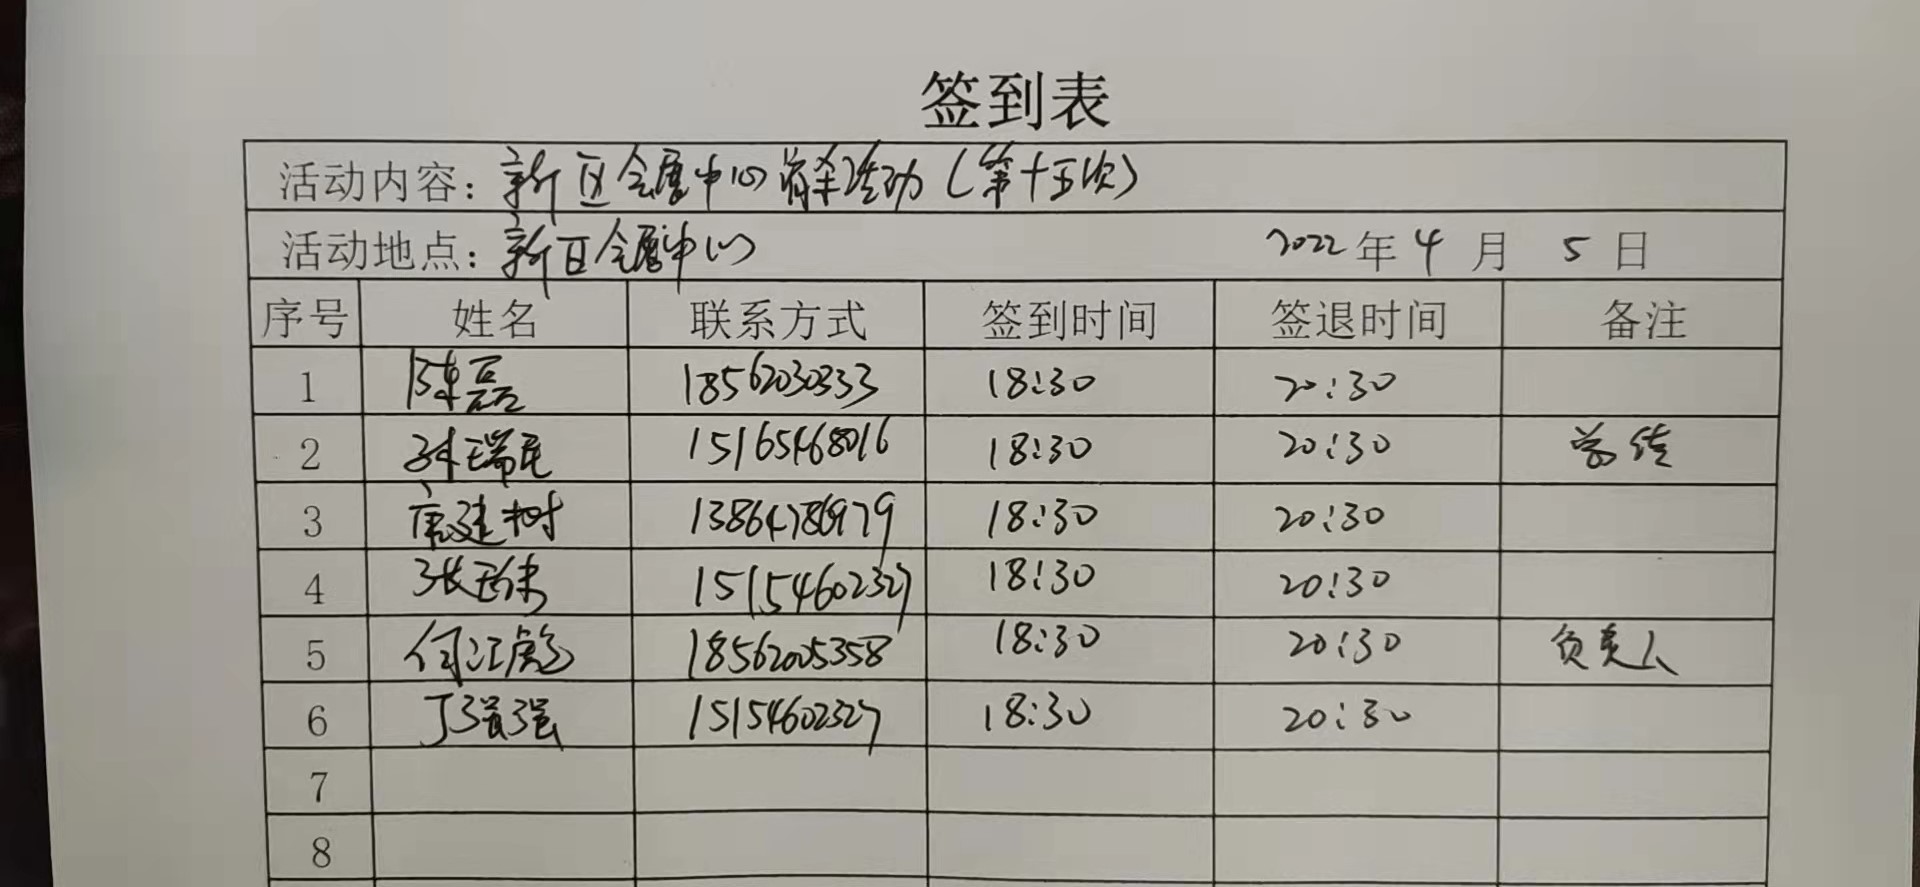 签到表
活动内容：新区会展中心消杀活动（第十五次）
活动地点：新区会展中心 2022年4月5日
序号 姓名 联系方式 签到时间 签退时间 备注
1 陈磊 18562030333 18:30 20:30
2 孙瑞民 15165468016 18:30 20:30 宣传
3 唐建树 13864786979 18:30 20:30
4 15154602327 18:30 20:30
5 18562005358 18:30 20:30 负责人
6 丁强强 15154602327 18:30 20:30
7
8